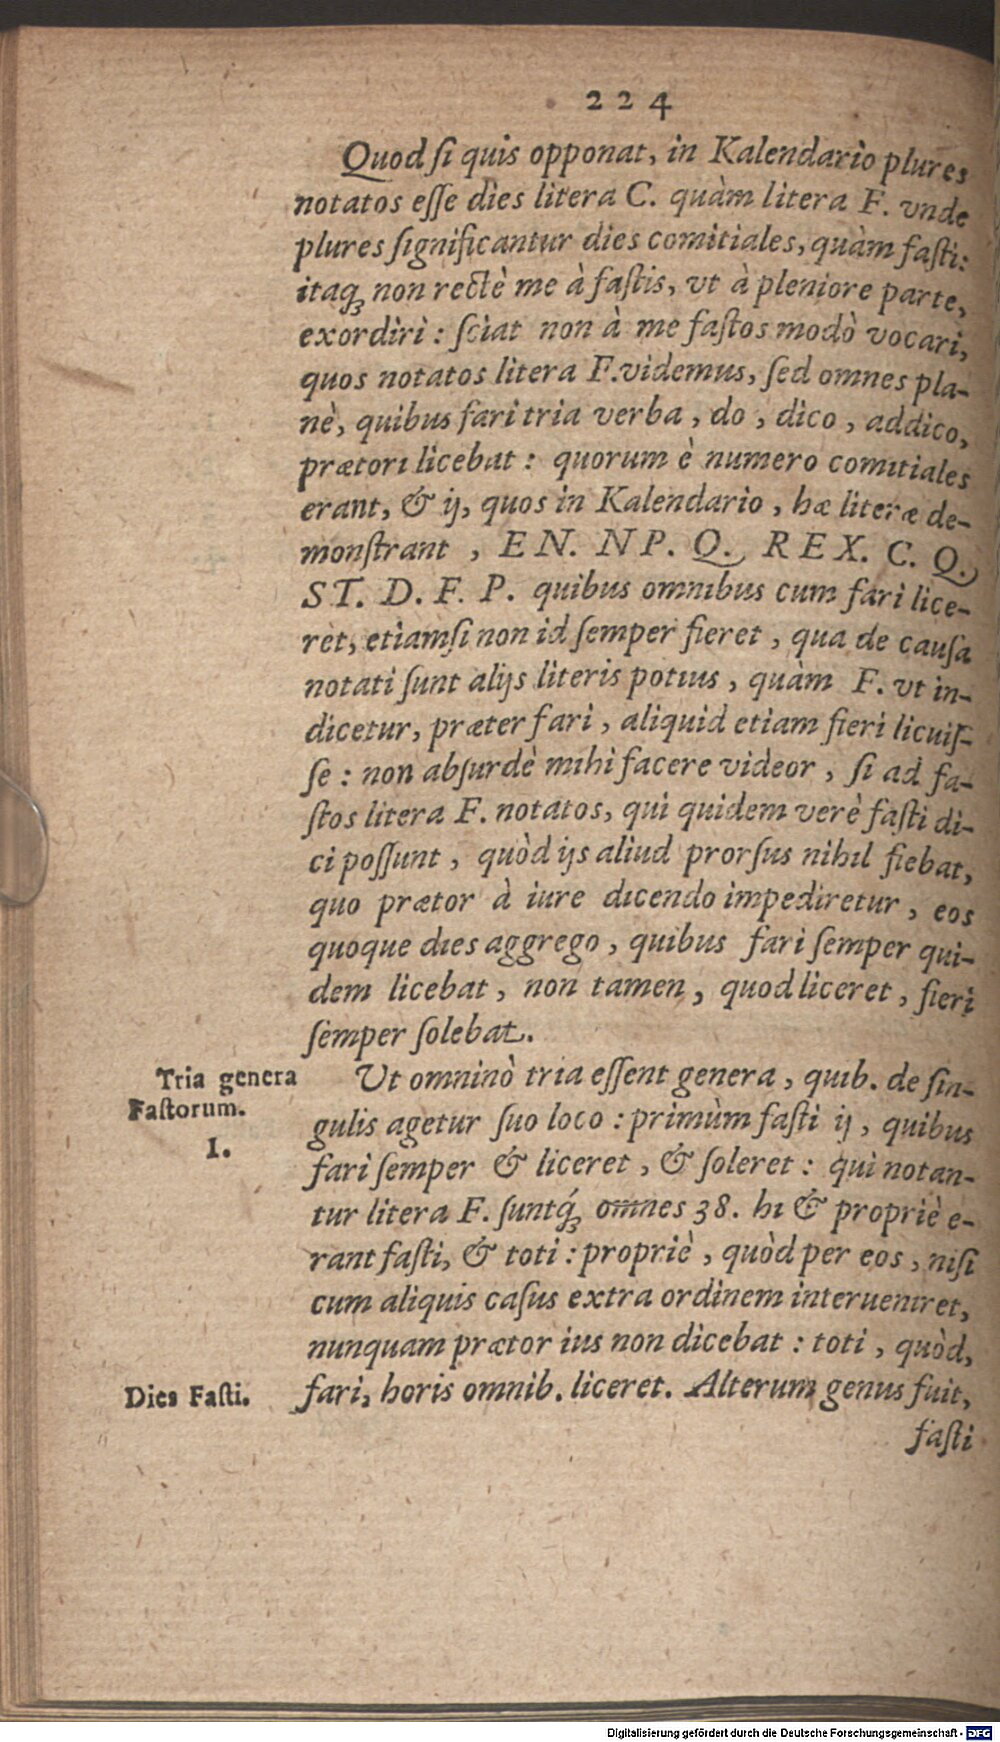 224
Quod ſi quis opponat, in Kalendario plures
notatos eſſe dies litera C. quàm litera F. vnde
plures ſignificantur dies comitiales, quàm faſti:
itaq́ꝫ non rectè me à faſtis, vt à pleniore parte,
exordiri: ſciat non à me faſtos modò vocari,
quos notatos litera F. videmus, ſed omnes pla-
nè, quibus fari tria verba, do, dico, addico,
prætori licebat: quorum è numero comitiales
erant, & ij, quos in Kalendario, hæ literæ de-
monſtrant, EN. NP. Q. REX. C. Q.
ST. D. F. P. quibus omnibus cum fari lice-
ret, etiamſi non id ſemper fieret, qua de cauſa
notati ſunt alijs literis potius, quàm F. vt in-
dicetur, præter fari, aliquid etiam fieri licuiſ-
ſe: non abſurdè mihi facere videor, ſi ad fa-
ſtos litera F. notatos, qui quidem verè faſti di-
ci poſſunt, quòd ijs aliud prorſus nihil fiebat,
quo prætor à iure dicendo impediretur, eos
quoque dies aggrego, quibus fari ſemper qui-
dem licebat, non tamen, quod liceret, fieri
ſemper ſolebat.
Tria genera
Faſtorum.
I.
Ut omninò tria eſſent genera, quib. de ſin-
gulis agetur ſuo loco: primùm faſti ij, quibus
fari ſemper & liceret, & ſoleret: qui notan-
tur litera F. ſuntq́ꝫ omnes 38. hi & propriè e-
rant faſti, & toti: propriè, quòd per eos, niſi
cum aliquis caſus extra ordinem interueniret,
nunquam prætor ius non dicebat: toti, quòd,
Dies Faſti.
fari, horis omnib. liceret. Alterum genus fuit,
faſti
Digitalisierung gefördert durch die Deutsche Forschungsgemeinschaft - DFG